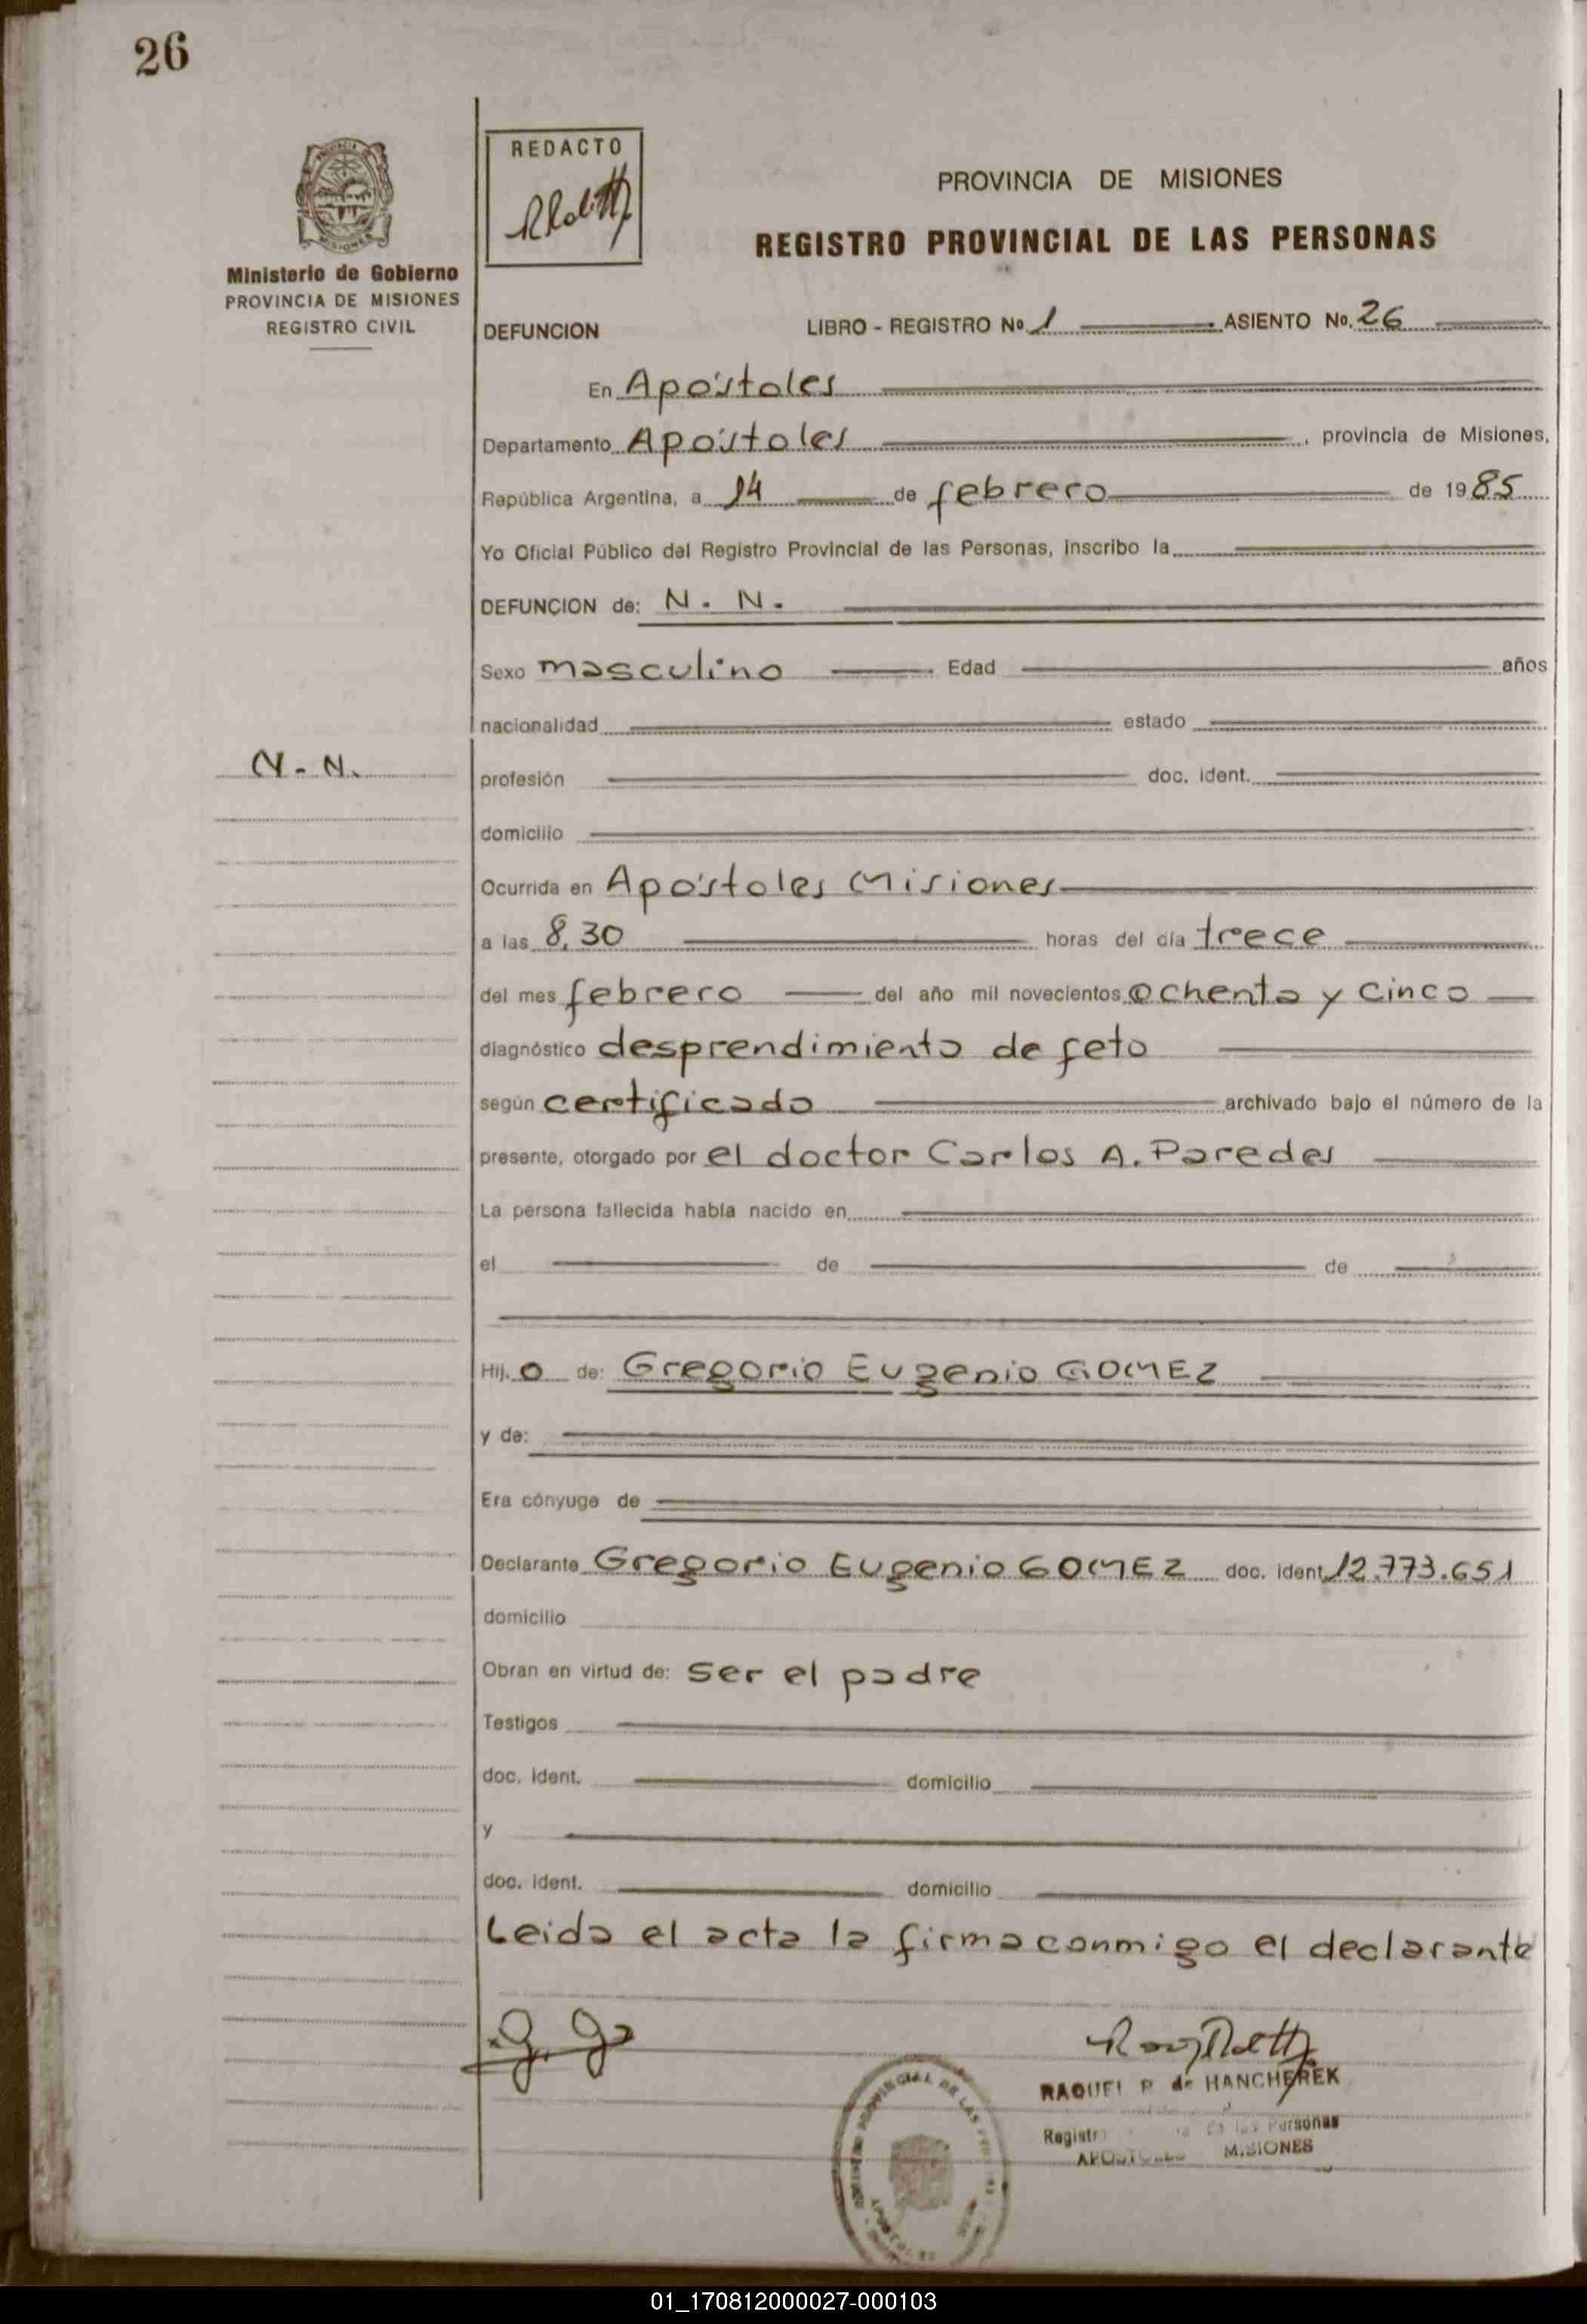 26
Ministerio de Gobierno
PROVINCIA DE MISIONES
REGISTRO CIVIL
REDACTO
PROVINCIA DE MISIONES
REGISTRO PROVINCIAL DE LAS PERSONAS
DEFUNCION LIBRO - REGISTRO No 1 ASIENTO No. 26
En Apóstoles
Departamento Apóstoles, provincia de Misiones,
República Argentina, a 14 de febrero de 1985
Yo Oficial Público del Registro Provincial de las Personas, inscribo la
DEFUNCION de: N. N.
Sexo masculino Edad años
nacionalidad estado
N. N.
profesión doc. ident.
domicilio
Ocurrida en Apóstoles Misiones
a las 8,30 horas del día trece
del mes febrero del año mil novecientos ochenta y cinco
diagnóstico desprendimiento de feto
según certificado archivado bajo el número de la
presente, otorgado por el doctor Carlos A. Paredes
La persona fallecida había nacido en
el de de
Hij.o de: Gregorio Eugenio GOMEZ
y de:
Era cónyuge de
Declarante Gregorio Eugenio GOMEZ doc. ident. 12.773.651
domicilio
Obran en virtud de: ser el padre
Testigos
doc. ident. domicilio
y
doc. ident. domicilio
Leida el acta la firma conmigo el declarante
RAQUEL P. de HANCHEREK
Registr de las Personas
APOSTOLES MISIONES
01_170812000027-000103